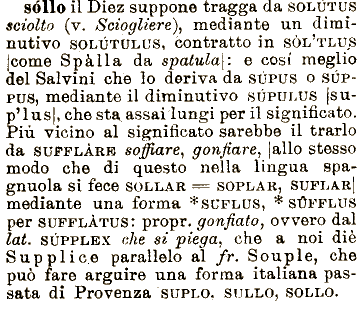 sóllo il Diez suppone tragga da SOLÚTUS
sciolto (v. Sciogliere), mediante un dimi-
nutivo SOLÚTULUS, contratto in SÒL'TLUS
|come Spàlla da spatula|: e cosí meglio
del Salvini che lo deriva da SÚPUS o SÚP-
PUS, mediante il diminutivo SÚPULUS |su-
p'lus|, che sta assai lungi per il significato.
Piú vicino al significato sarebbe il trarlo
da SUFFLÀRE soffiare, gonfiare, |allo stesso
modo che di questo nella lingua spa-
gnuola si fece SOLLAR = SOPLAR, SUFLAR|
mediante una forma *SUFLUS, *SÚFFLUS
per SUFFLÀTUS: propr. gonfiato, ovvero dal
lat. SÚPPLEX che si piega, che a noi diè
Supplice parallelo al fr. Souple, che
può fare arguire una forma italiana pas-
sata di Provenza SUPLO, SULLO, SOLLO.